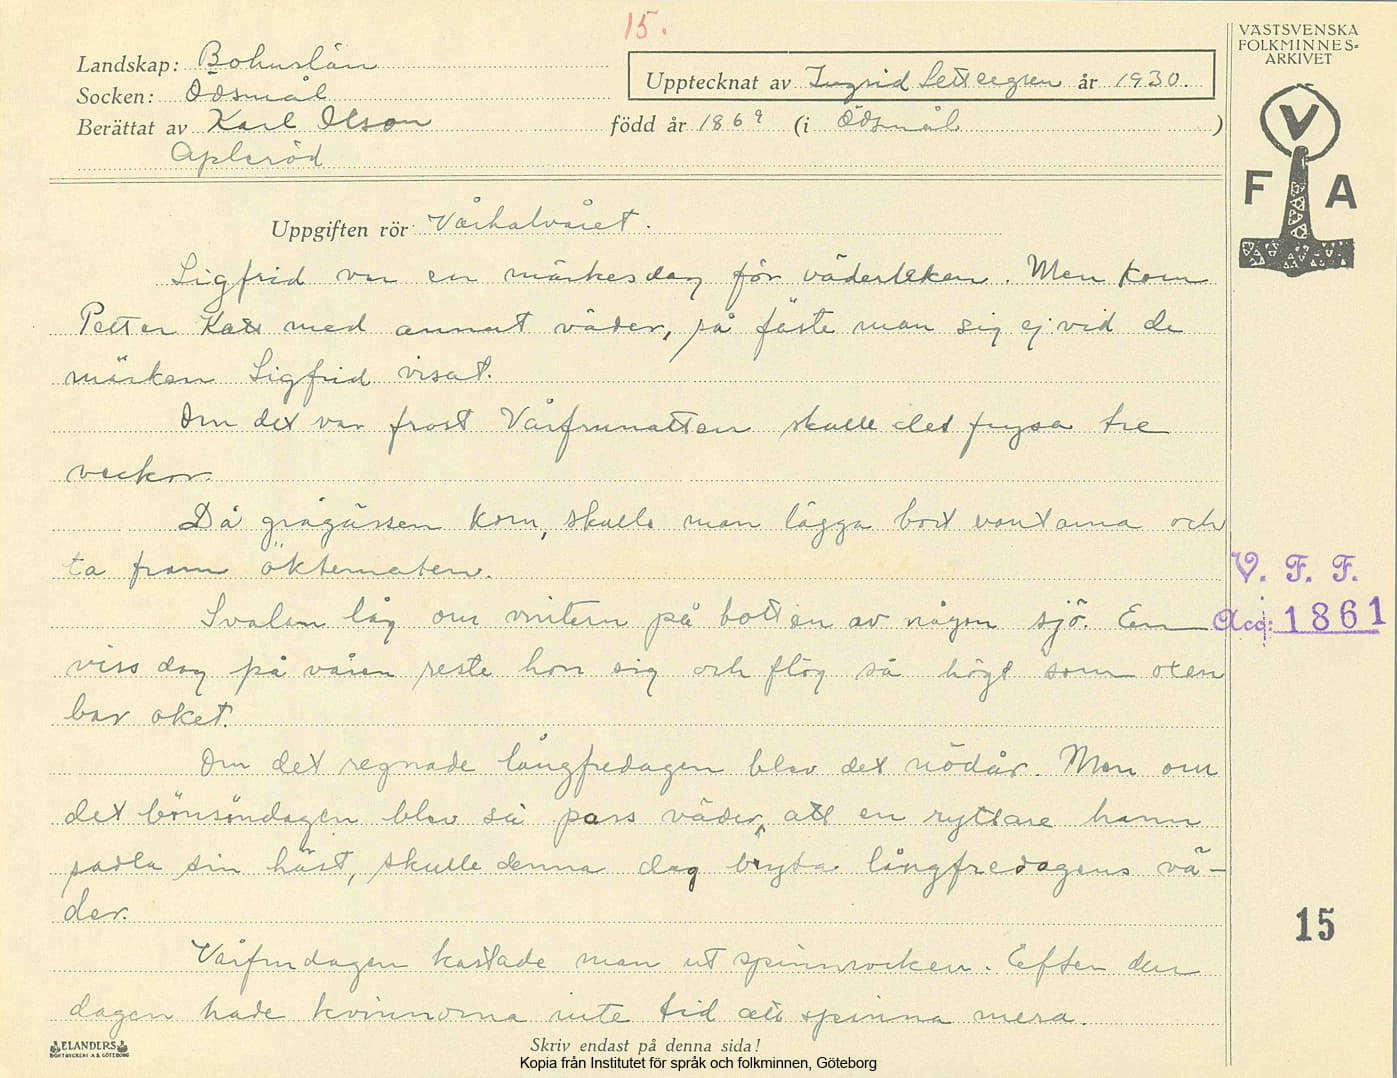 15.
VÄSTSVENSKA
FOLKMINNES=
ARKIVET
Landskap: Bohuslän
Upptecknat av Ingrid Settergren år 1930.
Socken: Ödsmål
Berättat av Karl Olson född år 1869 (i Ödsmål )
Apleröd
V
F A
Uppgiften rör Vårhalvåret.
Sigfrid var en märkesdag för väderleken. Men kom
Petter Katt med annat väder, så fäste man sig ej vid de
märken Sigfrid visat.
Om det var frost Vårfrunatten skulle det frysa tre
veckor.
Då grågässen kom, skulle man lägga bort vantarna och
ta fram öktematen.
Svalan låg om vintern på botten av någon sjö. En
viss dag på våren reste hon sig och flög så högt som oxen
bar oket.
Om det regnade långfredagen blev det nödår. Men om
det bönsöndagen blev så pass väder, att en ryttare hann
sadla sin häst, skulle denna dag bryta långfredagens vä-
der.
Vårfrudagen kastade man ut spinnrocken. Efter den
dagen hade kvinnorna inte tid att spinna mera.
V. F. F.
Acc: 1861
15
ELANDERS
BOKTRYCKERI A.B. GÖTEBORG
Skriv endast på denna sida!
Kopia från Institutet för språk och folkminnen, Göteborg